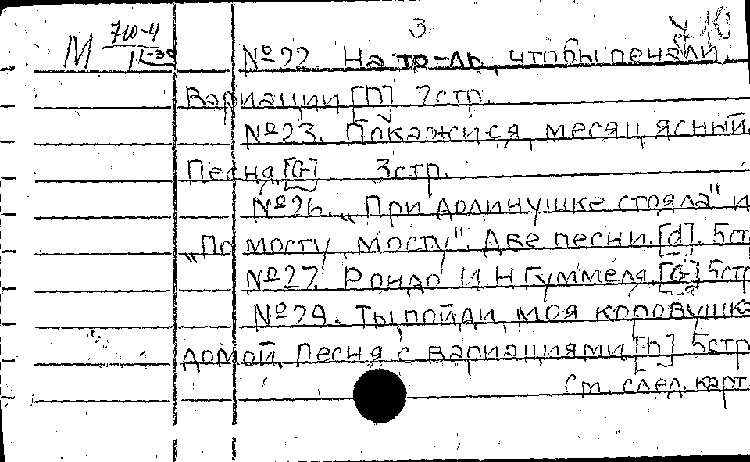 3
М 710-4
1-39
№22. На то-ль, чтобы печали.
Вариации [D] 7стр.
№23. Покажися, месяц ясный.
Песня. [G] 3стр.
№26. „При долинушке стояла" и
„По мосту, мосту". Две песни. [d]. 5стр
№27. Рондо И Н Гуммеля. [G] 5стр
№29. Ты пойди, моя коровушка
домой. Песня с вариациями. [h] 5стр
См. след. карт